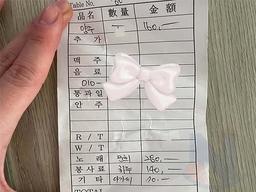 Table No. 80
品名 數量 金額
양주 160,—
추가
맥주
음료
010-
통과일
안주
R / T
W / T
노래 280,—
봉사료 140,—
기타 20.—
TOTAL